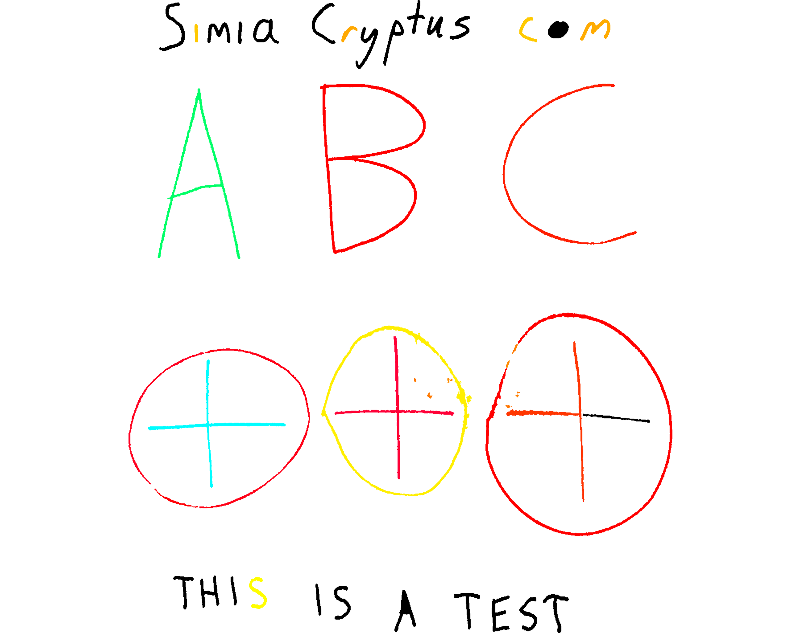 Simia Cryptus com
A B C
THIS IS A TEST